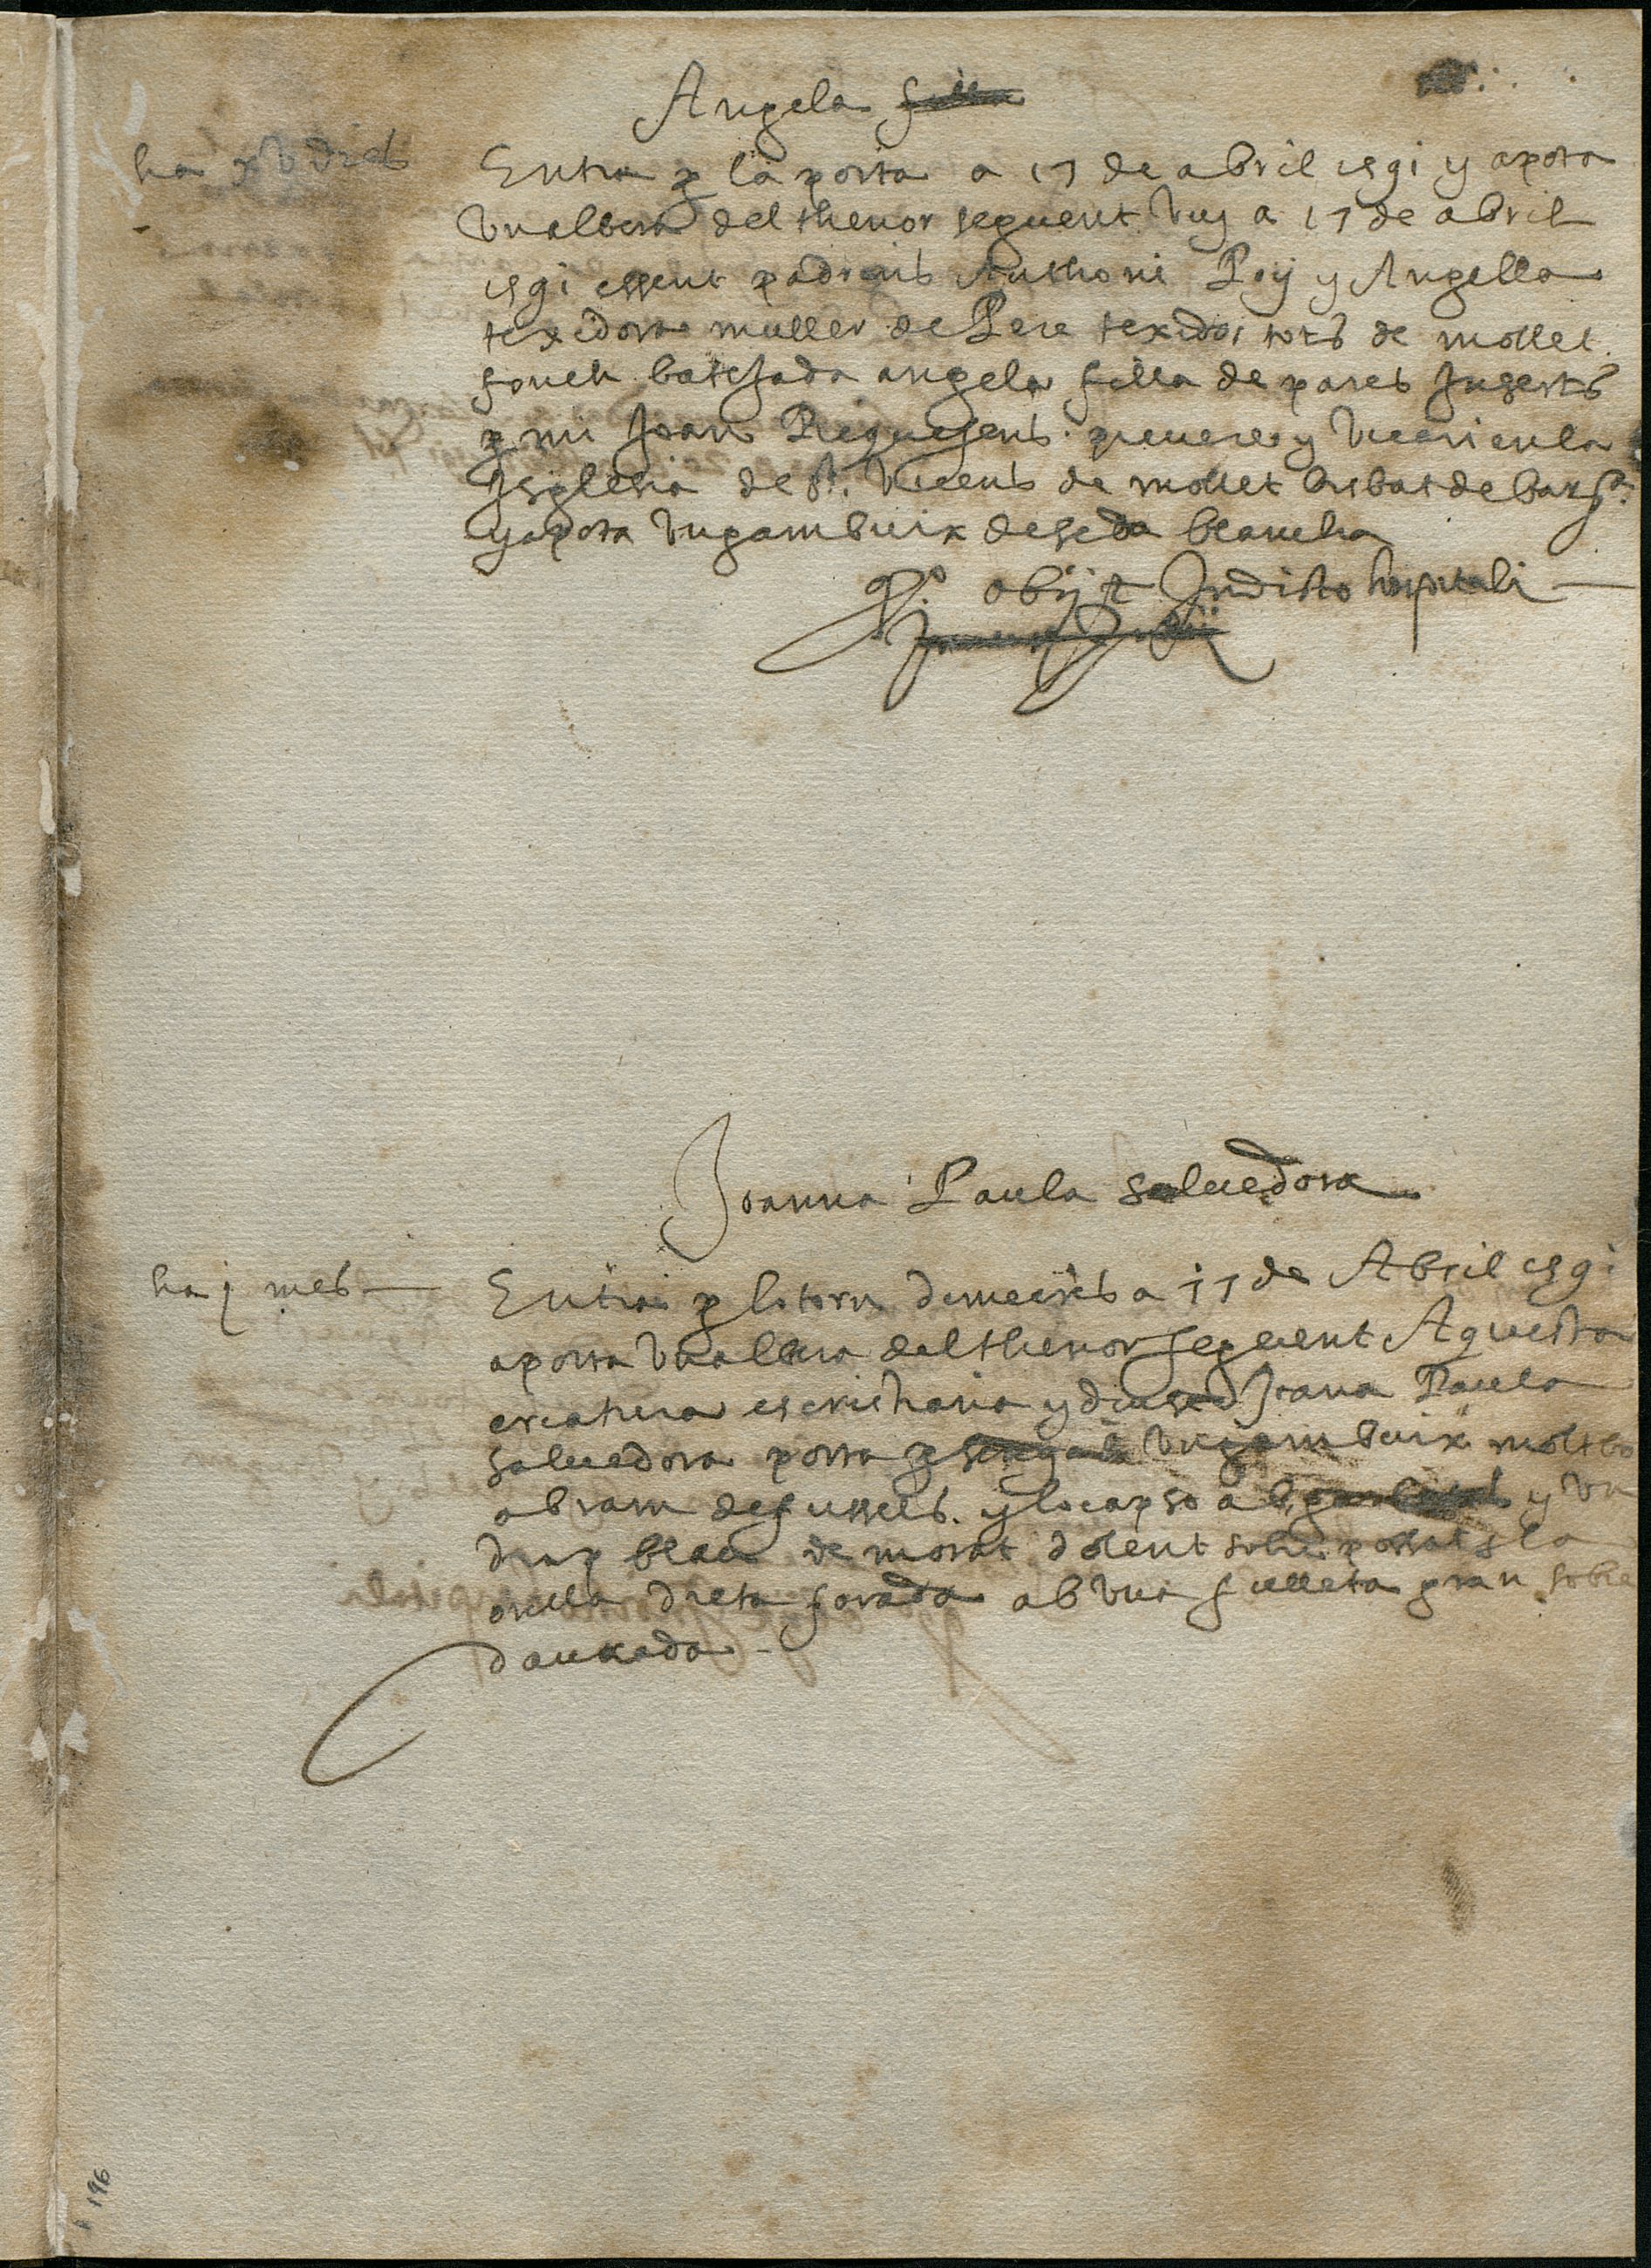 Angela filla
ha xv dies
Entra p la porta a 17 de abril 1591 y aporta
un albera del thenor seguent vuy a 17 de abril
1591 essent padrins Anthoni Poy y Angella
texidora muller de Pere texidor tots de mollet
fonch batejada angela filla de pares Inserts
p mi Joan Requesens prevere y vicari en la
Isglesia de St. Vicens de mollet bisbat de barna
y aporta un gambuix de seda blancha
obijt In dicto hospitali
Joanna Paula salvedora
ha j mes
Entra p lo torn dimecres a 17 de Abril 1591
aporta un albera del thenor seguent Aquesta
creatura es cristiana y diuse Joana Paula
salvedora porta un gambuix molt bo
obram de fussells y lo capso ab y un
drap blau de morat dolent sobreposat y la
orella dreta forada ab una fulleta gran sobre
daurada
196